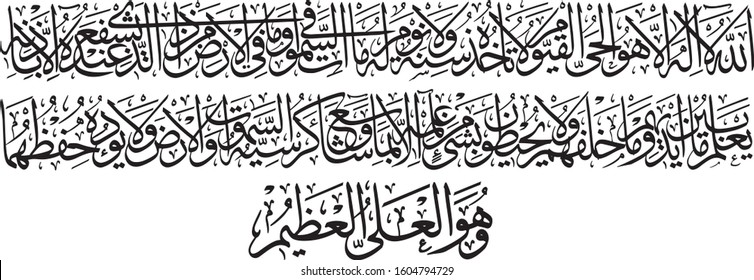 اللَّهُ لَا إِلَٰهَ إِلَّا هُوَ الْحَيُّ الْقَيُّومُ لَا تَأْخُذُهُ سِنَةٌ وَلَا نَوْمٌ لَهُ مَا فِي السَّمَاوَاتِ وَمَا فِي الْأَرْضِ مَنْ ذَا الَّذِي يَشْفَعُ عِنْدَهُ إِلَّا بِإِذْنِهِ
يَعْلَمُ مَا بَيْنَ أَيْدِيهِمْ وَمَا خَلْفَهُمْ وَلَا يُحِيطُونَ بِشَيْءٍ مِنْ عِلْمِهِ إِلَّا بِمَا شَاءَ وَسِعَ كُرْسِيُّهُ السَّمَاوَاتِ وَالْأَرْضَ وَلَا يَئُودُهُ حِفْظُهُمَا
وَهُوَ الْعَلِيُّ الْعَظِيمُ
shutterstock.com · 1604794729